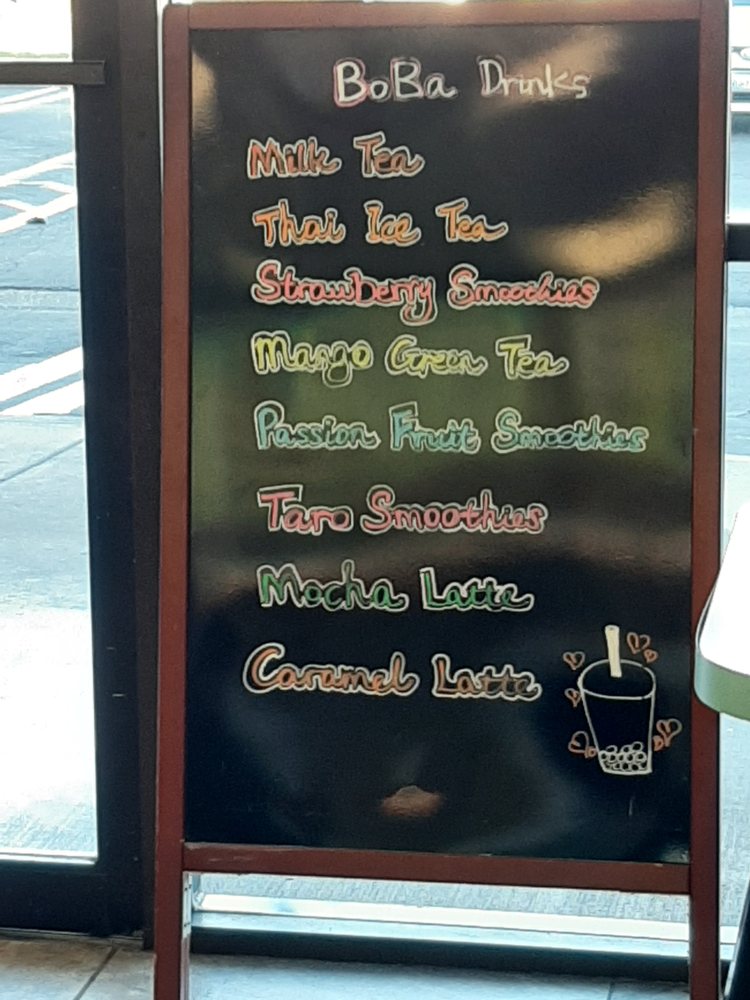 BoBa Drinks
Milk Tea
Thai Ice Tea
Strawberry Smoothies
Mango Green Tea
Passion Fruit Smoothies
Taro Smoothies
Mocha Latte
Caramel Latte